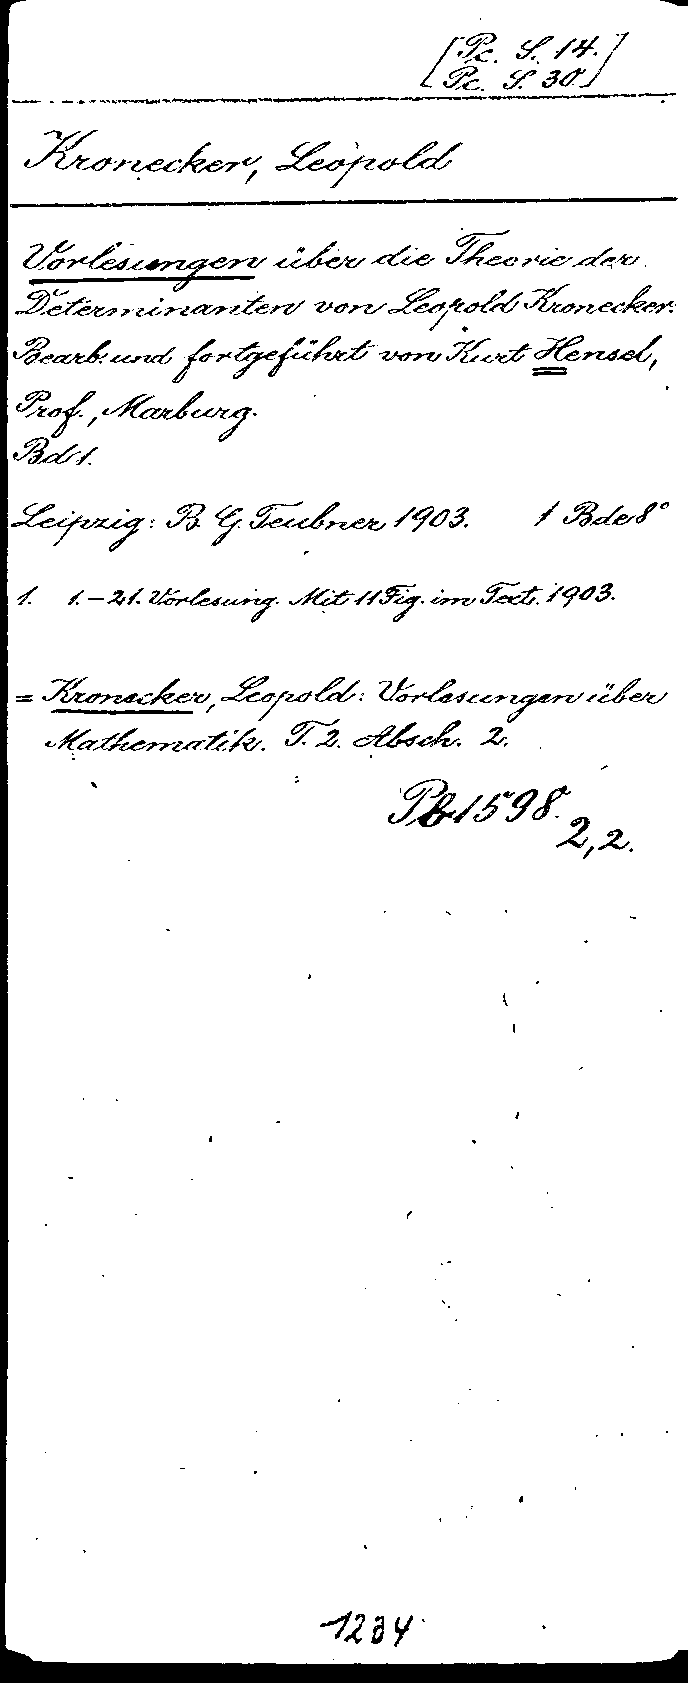 [Pc. S. 14.]
[Pc. S. 30]
Kronecker, Leopold
Vorlesungen über die Theorie der
Determinanten von Leopold Kronecker.
Bearb. und fortgeführt von Kurt Hensel,
Prof., Marburg.
Bd 1.
Leipzig: B. G. Teubner 1903. 1 Bde 8°
1. 1.-21. Vorlesung. Mit 11 Fig. im Text. 1903.
= Kronecker, Leopold: Vorlesungen über
Mathematik. T. 2. Absch. 2.
Pb 1598.
2,2.
1234